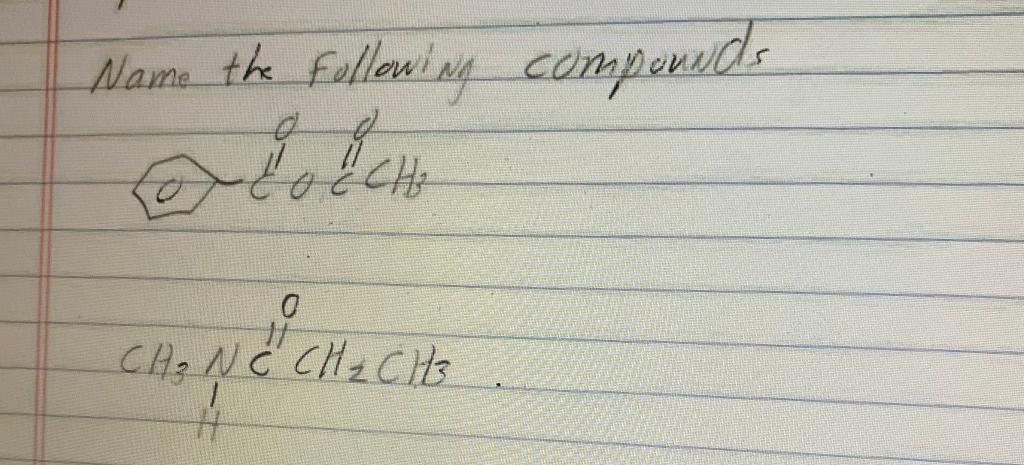 Name the following compounds
O O
|| ||
C O C CH3
O
||
CH3 N C CH2 CH3 .
|
H